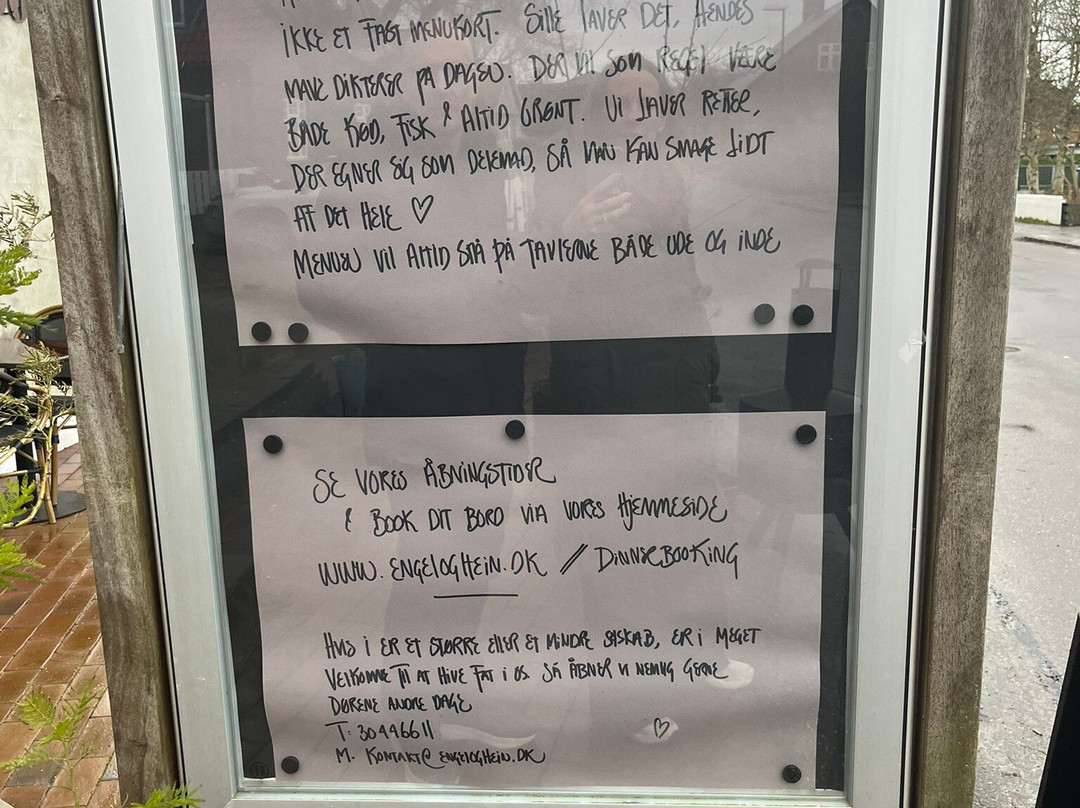 IKKE ET FAST MENUKORT. SILLE LAVER DET, HENDES
MAVE DIKTERER PÅ DAGEN. DER VIL SOM REGEL VÆRE
BÅDE KØD, FISK & ALTID GRØNT. VI LAVER RETTER,
DER EGNER SIG SOM DELEMAD, SÅ MAN KAN SMAGE LIDT
AF DET HELE ♡
MENUEN VIL ALTID STÅ PÅ TAVLERNE BÅDE UDE OG INDE
SE VORES ÅBNINGSTIDER
& BOOK DIT BORD VIA VORES HJEMMESIDE
WWW.ENGELOGHEIN.DK // DINNERBOOKING
HVIS I ER ET STØRRE ELLER ET MINDRE SELSKAB, ER I MEGET
VELKOMNE TIL AT HIVE FAT I OS. SÅ ÅBNER VI NEMLIG GERNE
DØRENE ANDRE DAGE
T: 30446611
M. KONTAKT@ENGELOGHEIN.DK ♡